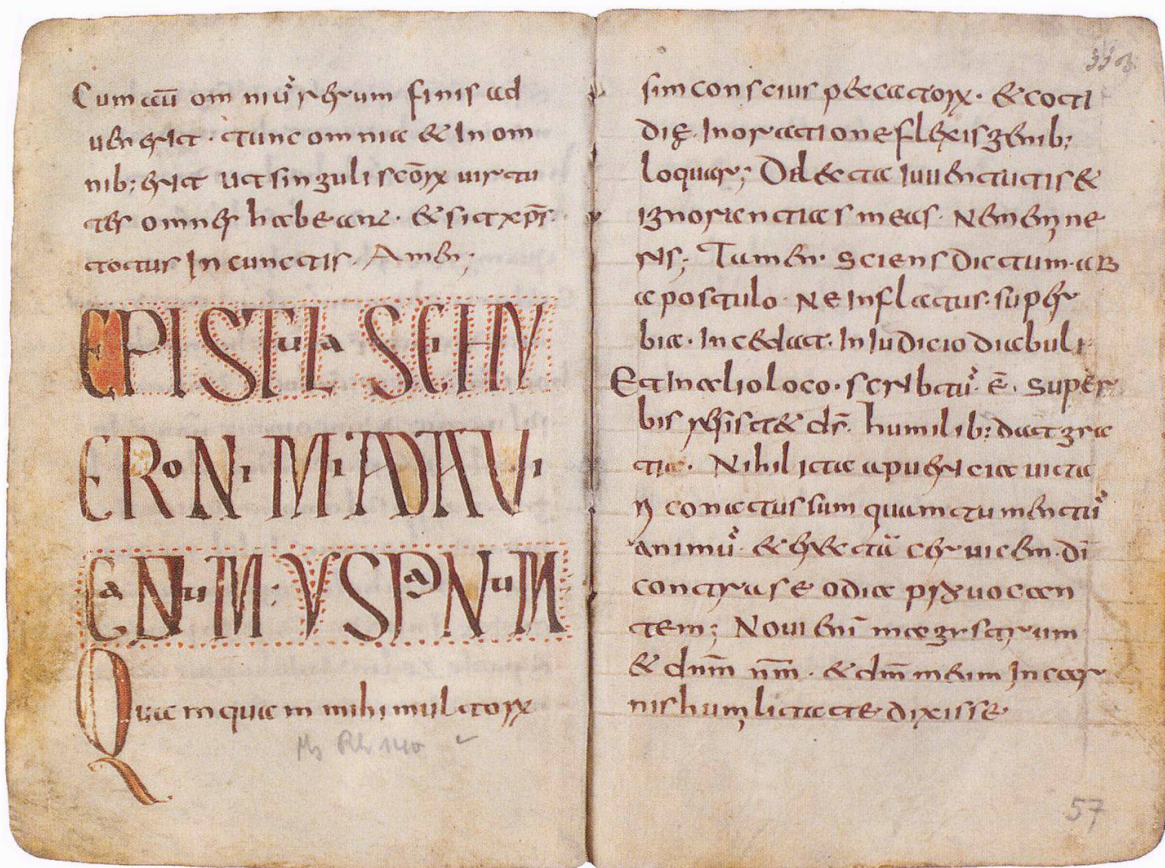 Cum aū om niū rerum finis ad
uenerit· tunc omnia & In om
nib; erit ut singuli scōrx uirtu
tes omnes habeant· & sit xpr̄s
totus In cunctis· Amen;
EPISTuLa SCI HY
ERoNiMi AD AVi
CaENuM: VSPaNuM
Quamquam mihi multorx
sim conscius peccatorx· & coti
die In oratione flexis genib;
loquar; Delecta Iuuentutis &
Ignorantias meas· Nemenyne
ris; Tamen· sciens dictum· ab
apostulo· Ne Inflatus· super
bia· Incedat· In Iudicio diabuli
Et In alio loco· scribtū· ē· super
bis resistet dr̄· humilib; dat gra
tia· Nihil ita a pueritia uita
ɲ conatus sum quam tumentū
animū· & erectā ceruicem· dī
contra se odia prouocan
tem; Noui enī magistrum·
& dnm̄ nm̄· & dm̄ meum In car
nis humlitate· dixisse·
Ms Rh 140
57